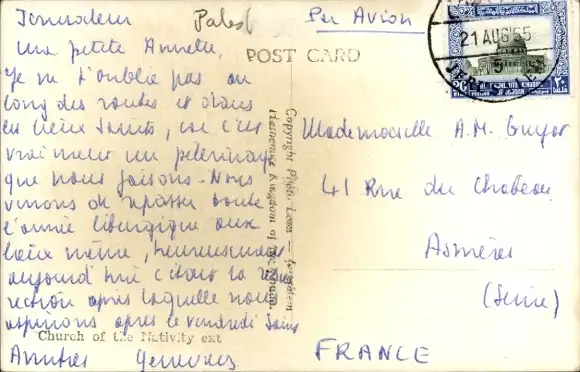 Jerusalem Palest
Per Avion
21 AUG 55
POST CARD
Ma petite Annette,
Je ne t'oublie pas au
long des routes et dans
les lieux Saints, car c'est
vraiment un pèlerinage
que nous faisons. Nous
venons de repasser toute
l'année liturgique aux
lieux même, heureusement
aujourd'hui c'était la résur
rection après laquelle nous
aspirions après le vendredi Saint
Church of the Nativity ext
Copyright Photo Leon — Jerusalem
Hashemite Kingdom of the Jordan.
Mademoiselle A.M.
41 Rue du Château
Asnières
(Seine)
FRANCE